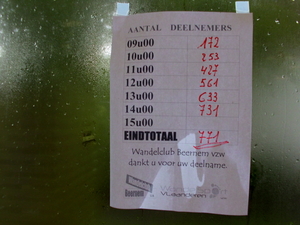 AANTAL DEELNEMERS
09u00 172
10u00 253
11u00 427
12u00 561
13u00 633
14u00 731
15u00
EINDTOTAAL 771
Wandelclub Beernem vzw
dankt u voor uw deelname.
Beernem
Vlaanderen